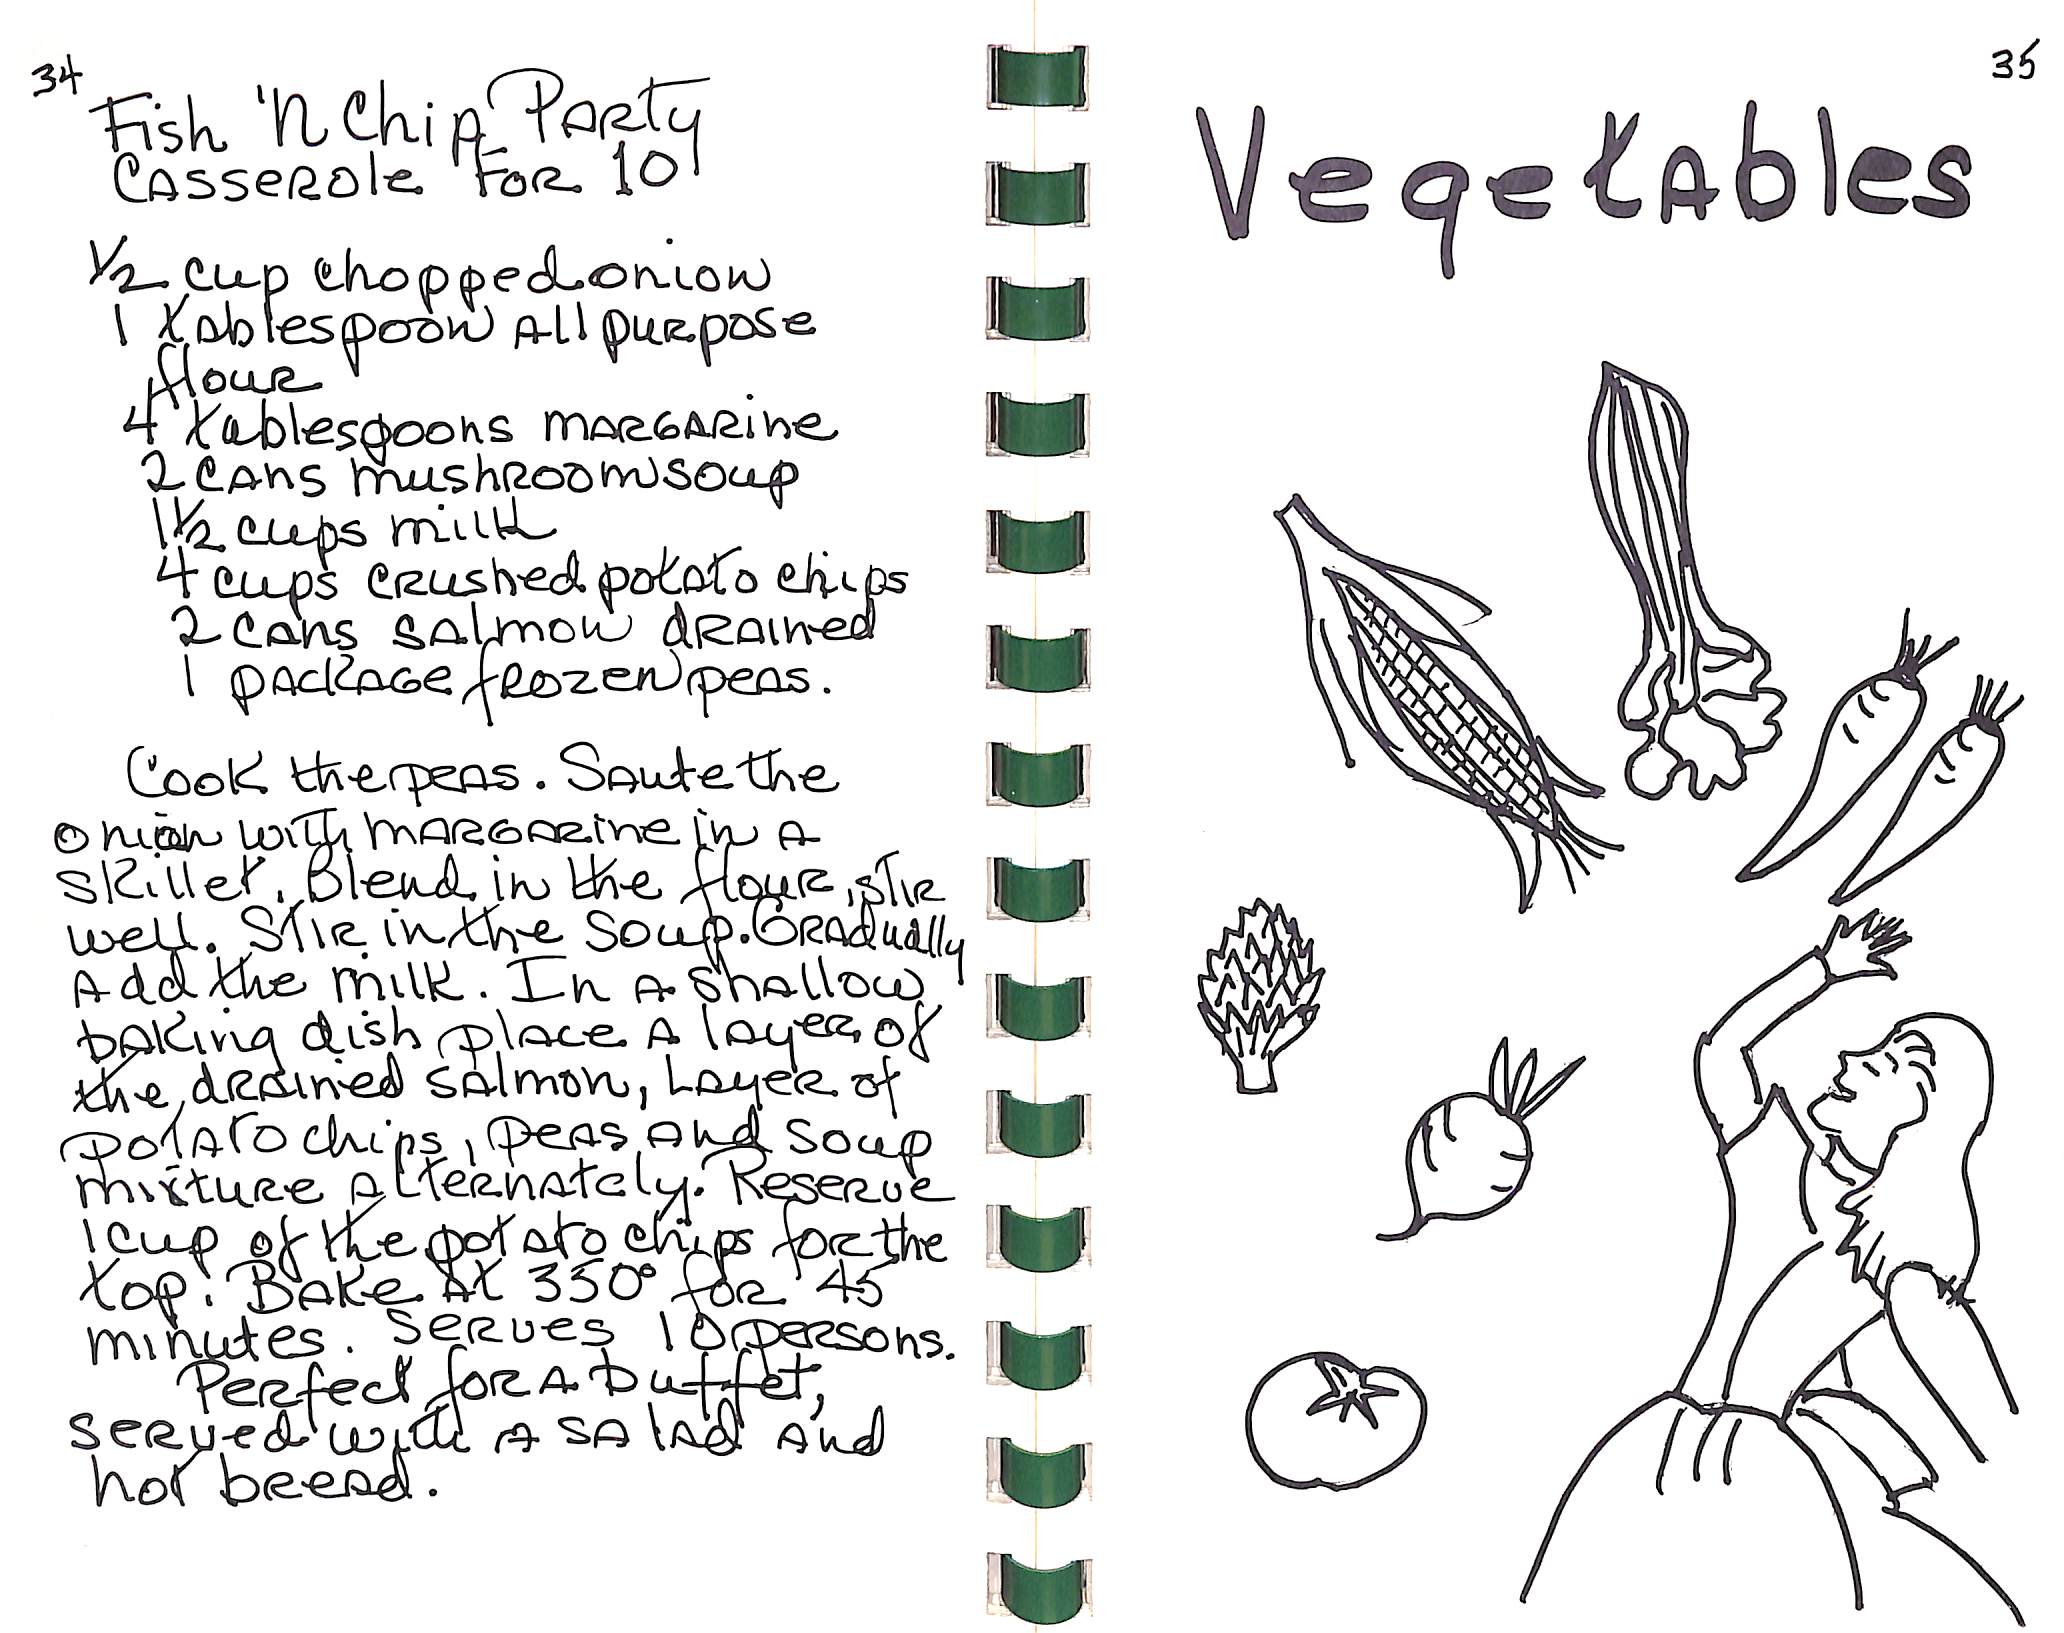 34
Fish 'N Chip Party
Casserole For 10
1/2 cup chopped onion
1 tablespoon all purpose
flour
4 tablespoons margarine
2 cans mushroom soup
1 1/2 cups milk
4 cups crushed potato chips
2 cans salmon drained
1 package frozen peas.
Cook the peas. Saute the
onion with margarine in a
skillet. Blend in the flour, stir
well. Stir in the soup. Gradually
add the milk. In a shallow
baking dish place a layer of
the drained salmon, layer of
potato chips, peas and soup
mixture alternately. Reserve
1 cup of the potato chips for the
top. Bake at 350° for 45
minutes. Serves 10 persons.
Perfect for a buffet,
served with a salad and
hot breead.
35
Vegetables